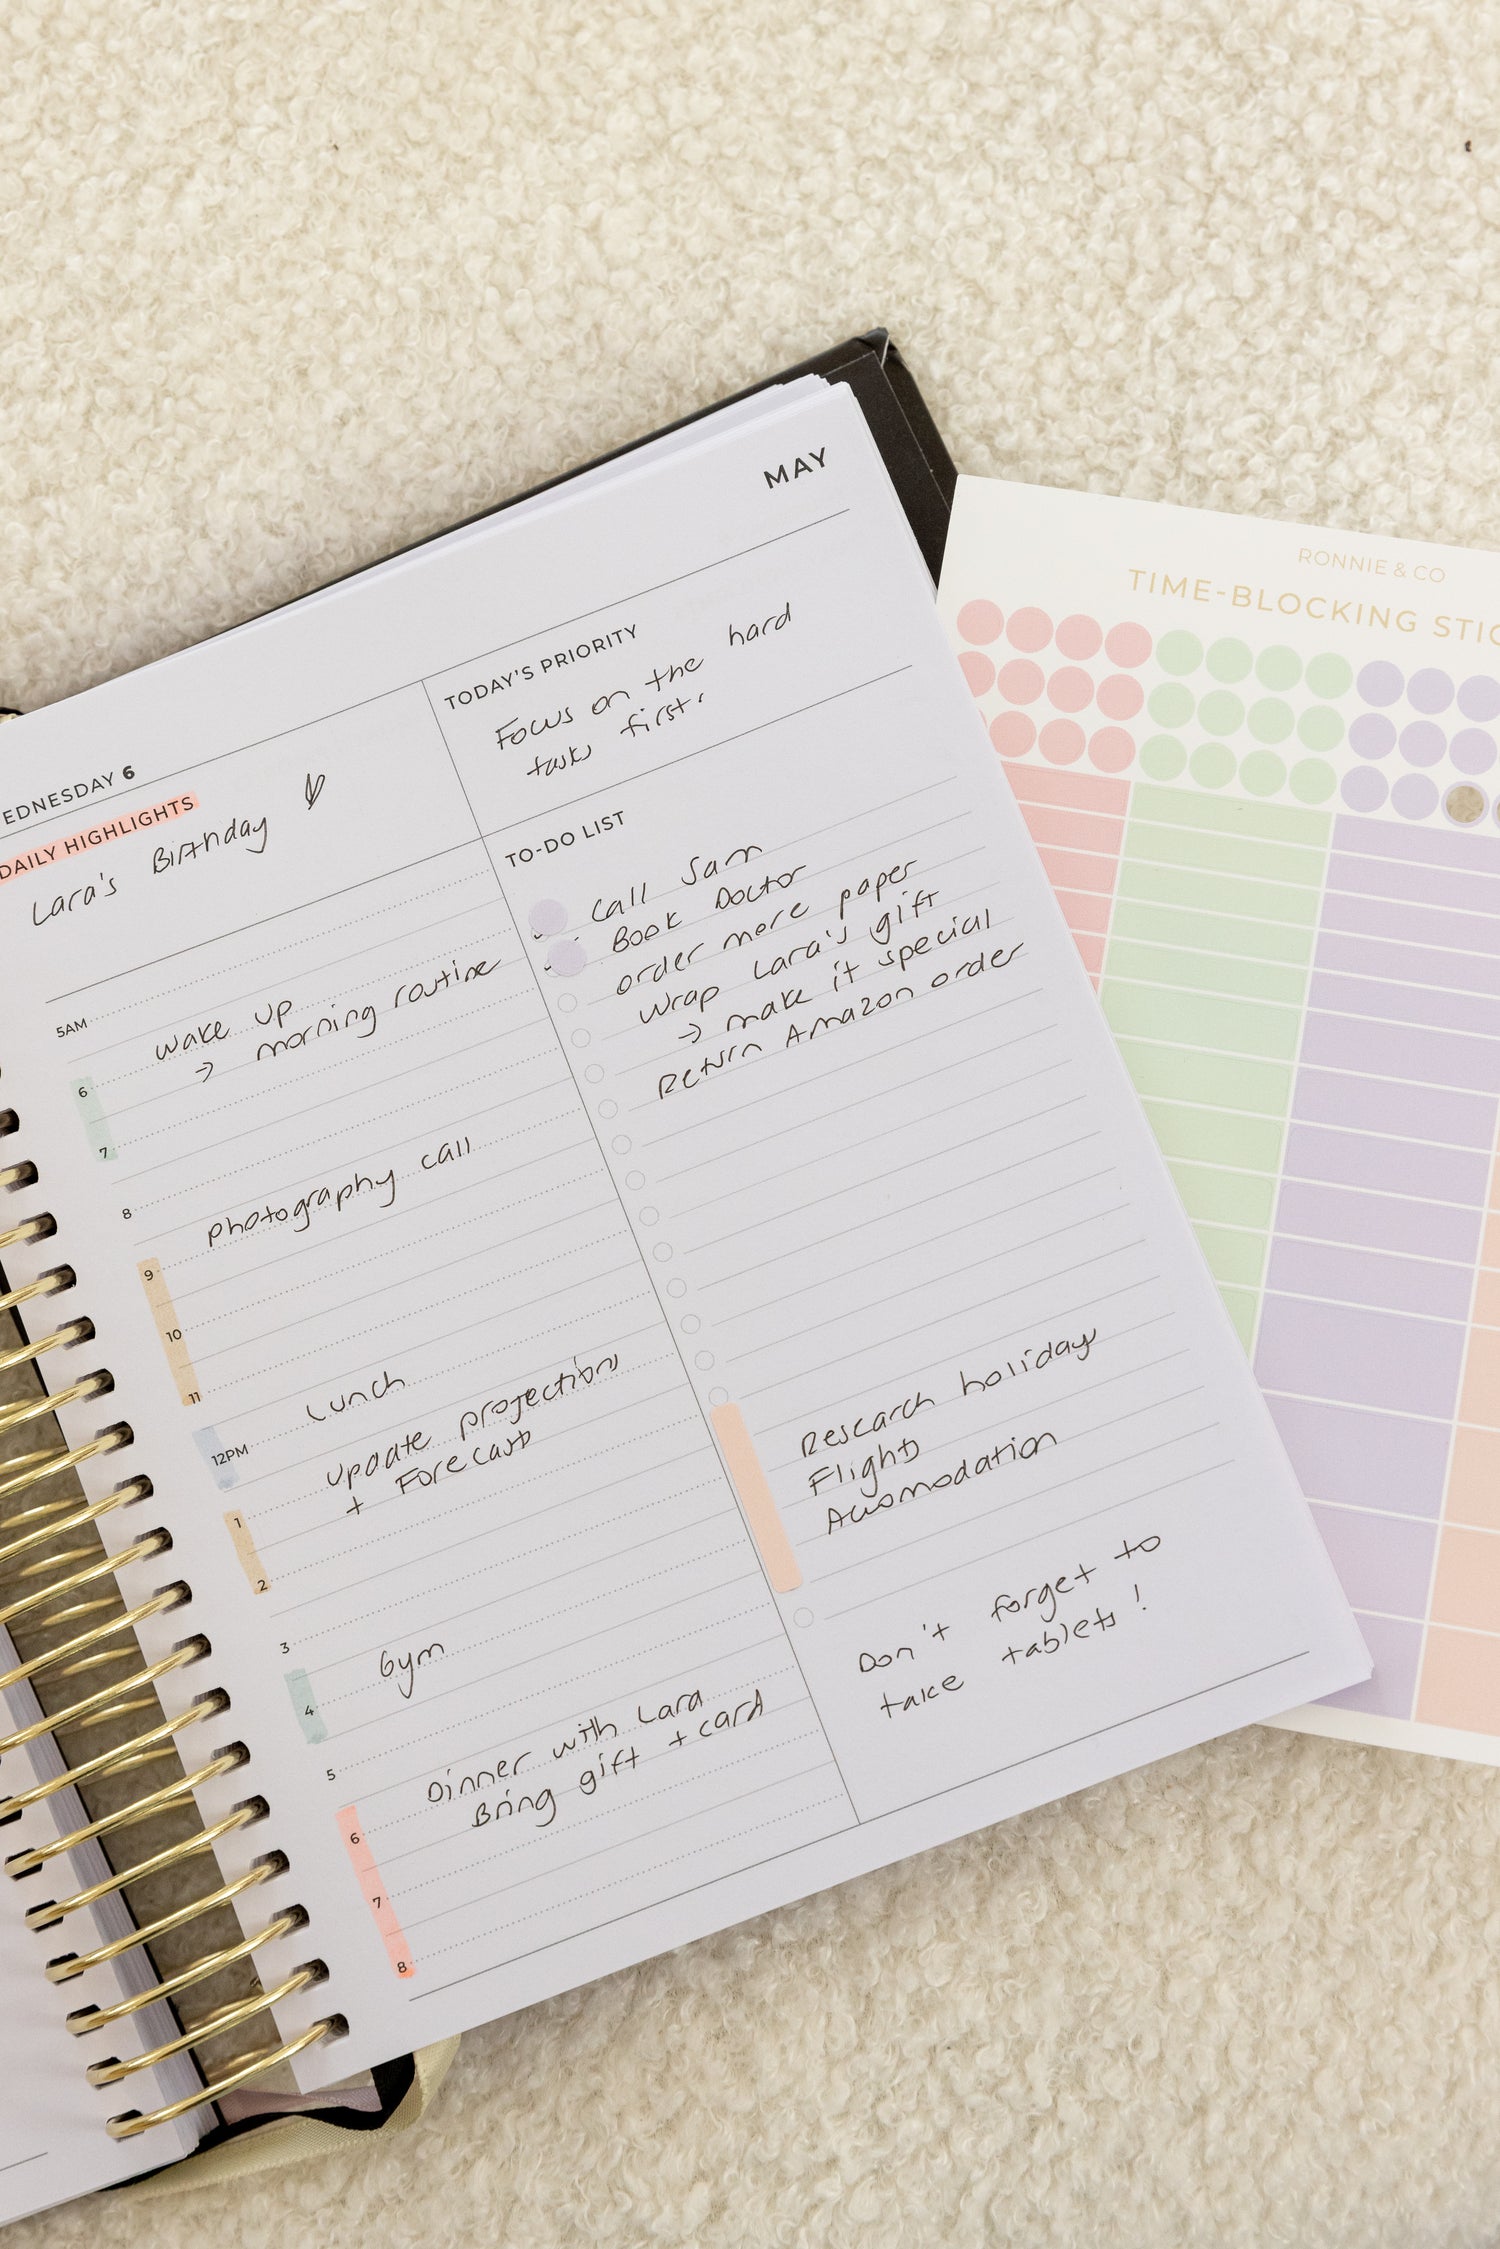 MAY
EDNESDAY 6
DAILY HIGHLIGHTS
Lara's Birthday
TODAY'S PRIORITY
Focus on the hard
tasks first.
5AM
wake up
→ morning routine
6
7
8
photography call
9
10
11
Lunch
12PM
update projections
+ Forecasts
1
2
3
Gym
4
5
Dinner with Lara
Bring gift + card
6
7
8
TO-DO LIST
Call Sam
Book Doctor
order more paper
wrap Lara's gift
→ make it special
Return Amazon order
Research holiday
Flights
Accomodation
Don't forget to
take tablets!
RONNIE & CO
TIME-BLOCKING STIC